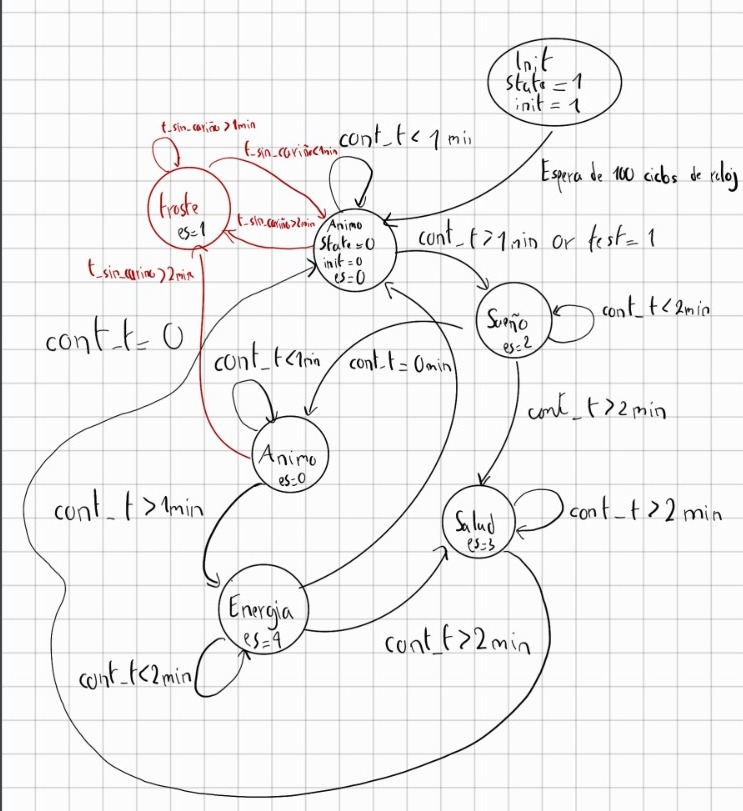 Init
state = 1
init = 1
Espera de 100 ciclos de reloj
t_sin_cariño >1min
t_sin_cariño<1min
cont_t < 1 min
triste
es=1
t_sin_cariño>2min
Animo
state=0
init=0
es=0
cont_t>1min or test=1
t_sin_cariño>2min
Sueño
es=2
cont_t<2min
cont_t= 0
cont_t<1min
cont_t=0min
cont_t>2min
Animo
es=0
cont_t>1min
Salud
es=3
cont_t>2min
Energia
es=4
cont_t>2min
cont_t<2min